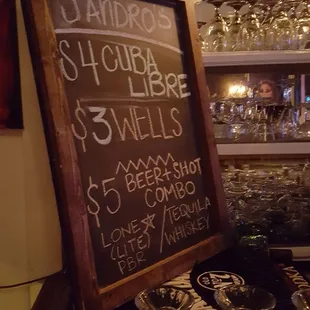 SANDRO'S
$4 CUBA
LIBRE
$3 WELLS
$5 BEER + SHOT
COMBO
LONE ☆ / TEQUILA
(LITE) / WHISKEY
PBR